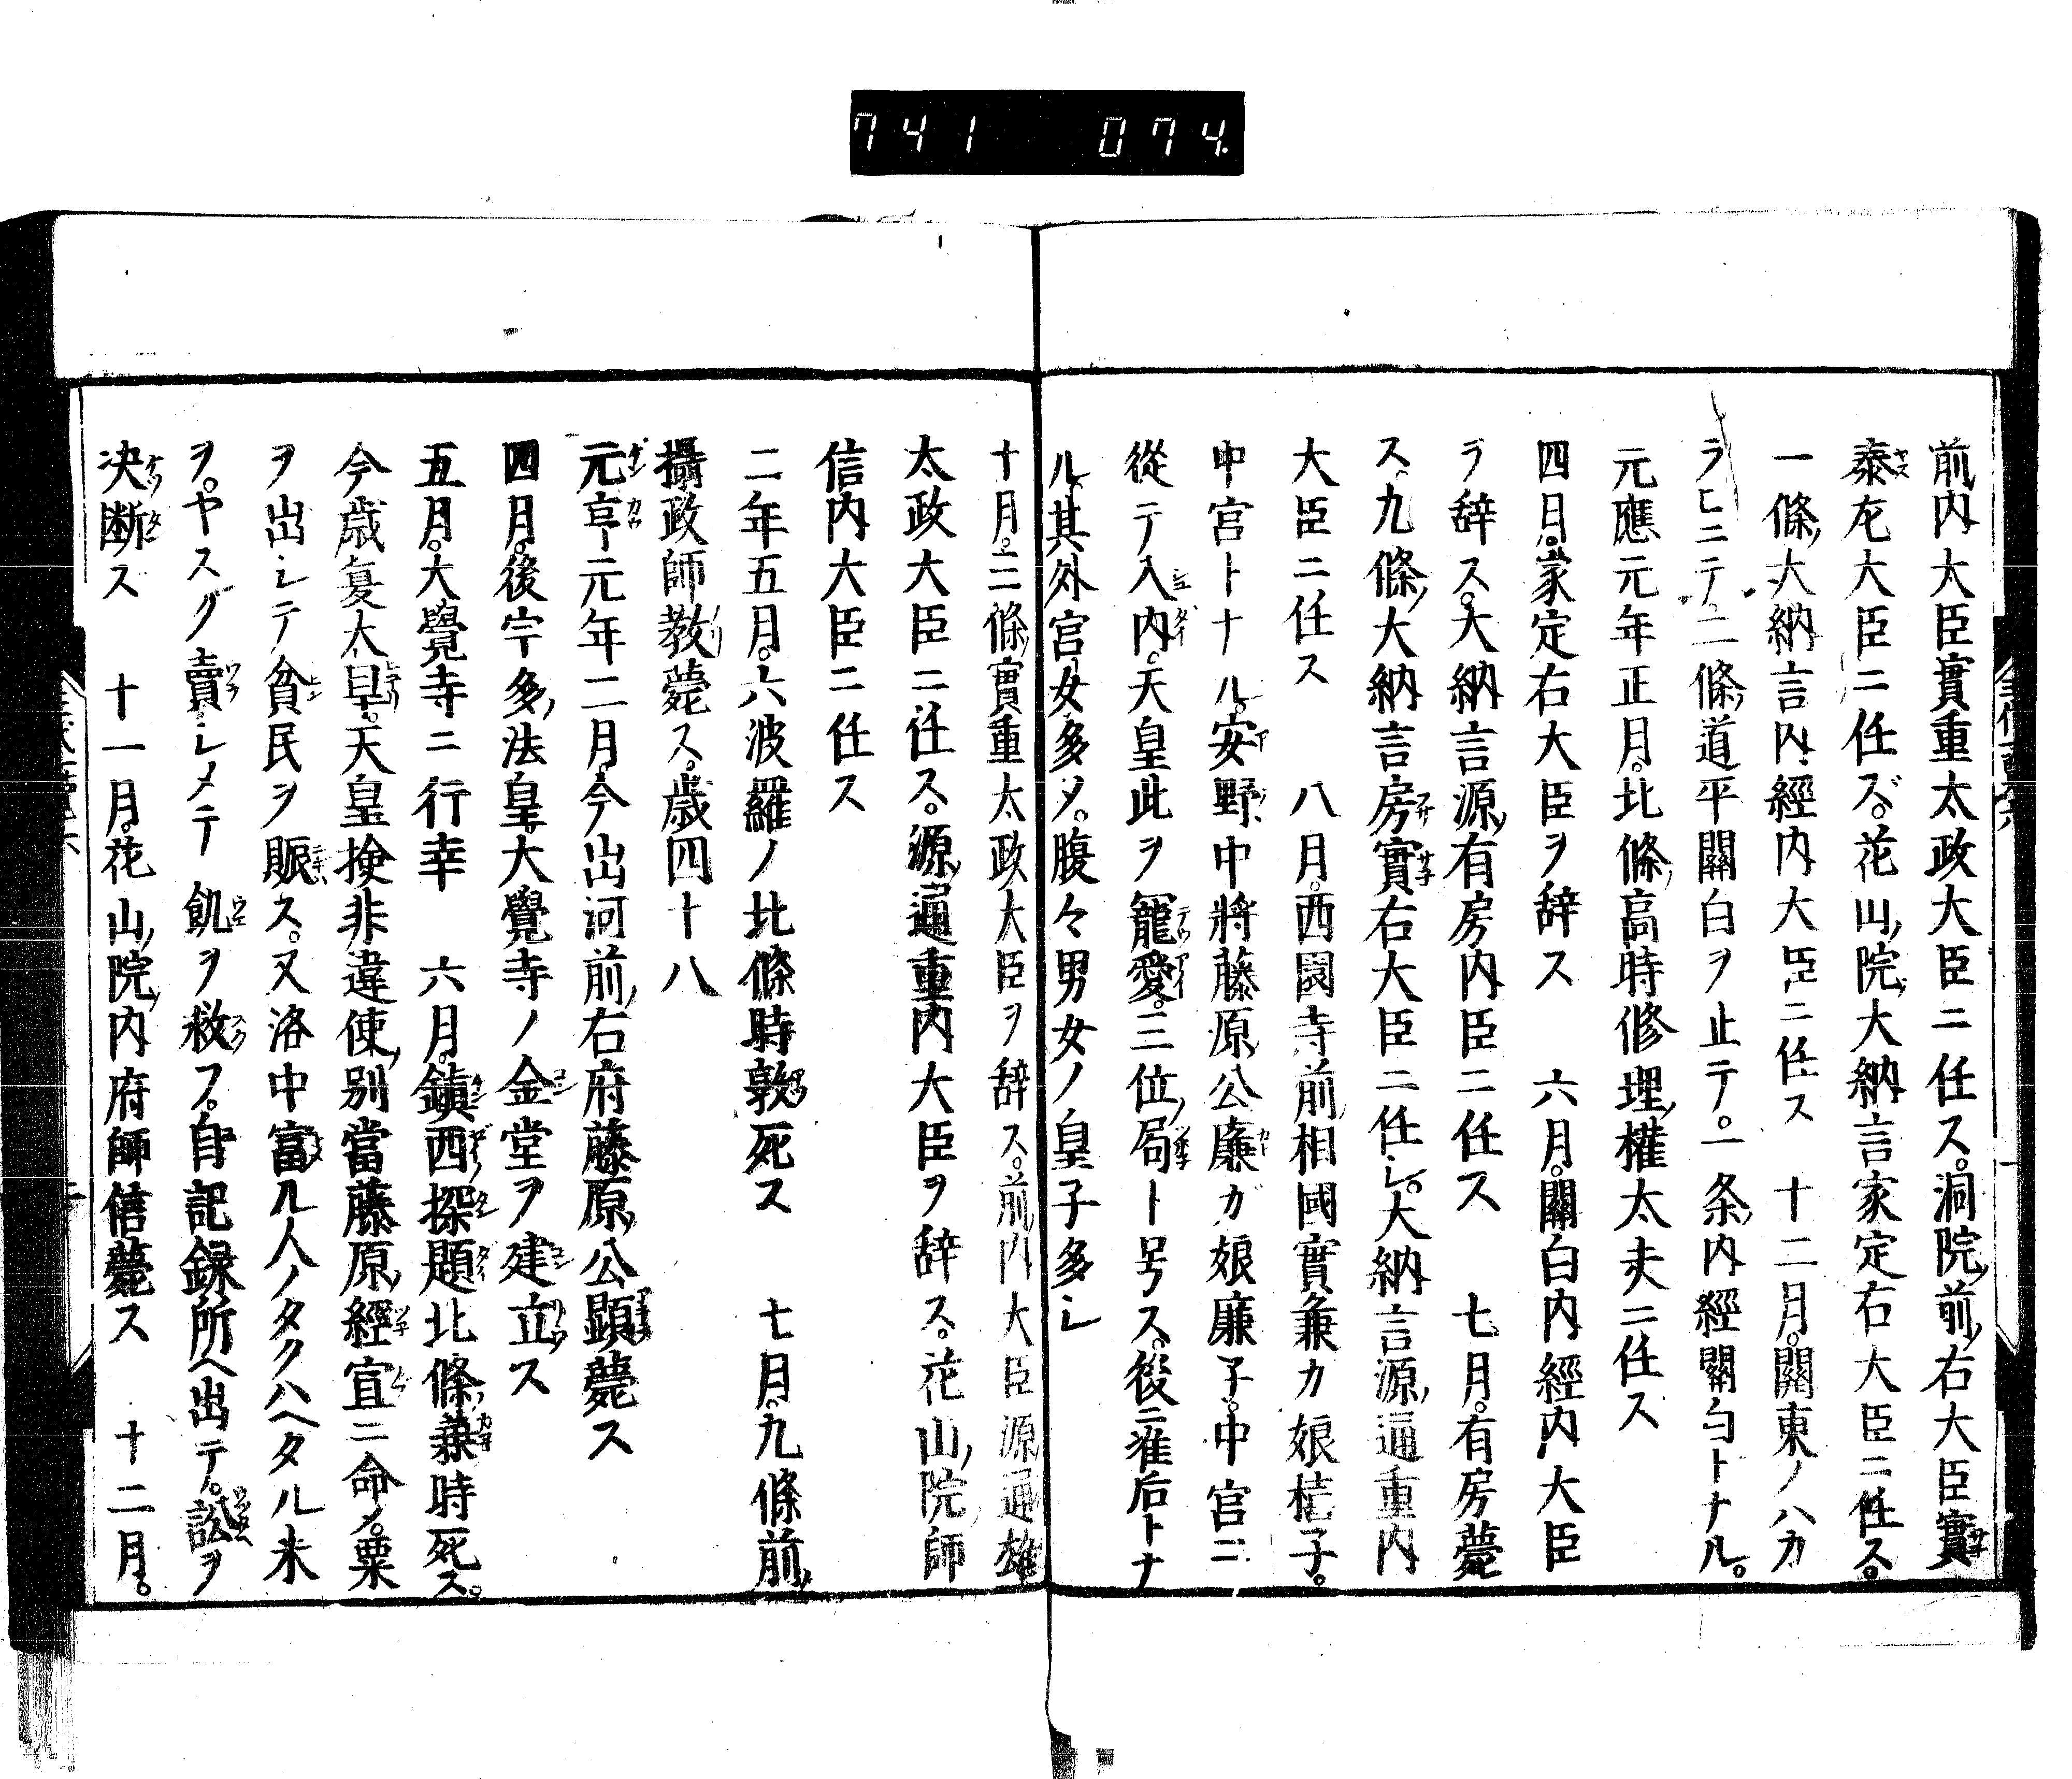 741 074.
前内大臣實重太政大臣ニ任ス。洞院前右大臣實
泰左大臣ニ任ズ。花山院大納言家定右大臣ニ任ス。
一條大納言内經内大臣ニ任ス　十二月。關東ノハカ
ラヒニテ。二條道平關白ヲ止テ。一条内經關白トナル。
元應元年正月。北條高時修理權太夫ニ任ス
四月。家定右大臣ヲ辞ス　六月。關白内經内大臣
ヲ辞ス。大納言源有房内臣ニ任ス　七月。有房薨
ス。九條大納言房實右大臣ニ任シ。大納言源通重内
大臣ニ任ス　八月。西園寺前相國實兼カ娘禧子。
中宮トナル。安野中將藤原公廉ガ娘廉子。中宮ニ
從テ入内。天皇此ヲ寵愛。三位局ト号ス。後ニ准后トナ
ル。其外官女多メ。腹々男女ノ皇子多シ
十月。三條實重太政大臣ヲ辞ス。前内大臣源通雄
太政大臣ニ任ス。源通重内大臣ヲ辞ス。花山院師
信内大臣ニ任ス
二年五月。六波羅ノ北條時敦死ス　七月。九條前
攝政師教薨ス。歳四十八
元亨元年二月。今出河前右府藤原公顯薨ス
四月。後宇多法皇。大覺寺ノ金堂ヲ建立ス
五月。大覺寺ニ行幸　六月。鎮西探題北條兼時死ス。
今歳夏大旱。天皇撿非違使別當藤原經宣ニ命メ。粟
ヲ出シテ貧民ヲ賑ス。又洛中富ル人ノタクハヘタル米
ヲ。ヤスク賣シメテ飢ヲ救フ。自記録所ヘ出テ。訟ヲ
决断ス　十一月。花山院内府師信薨ス　十二月。